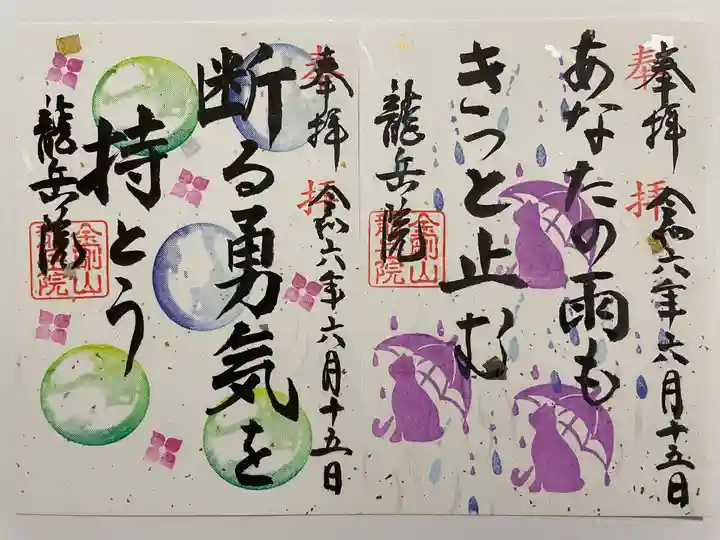 奉拝 令和六年六月十五日
奉拝
あなたの雨も
きっと止む
龍岳院
金剛山
龍岳院
奉拝 令和六年六月十五日
奉拝
断る勇気を
持とう
龍岳院
金剛山
龍岳院